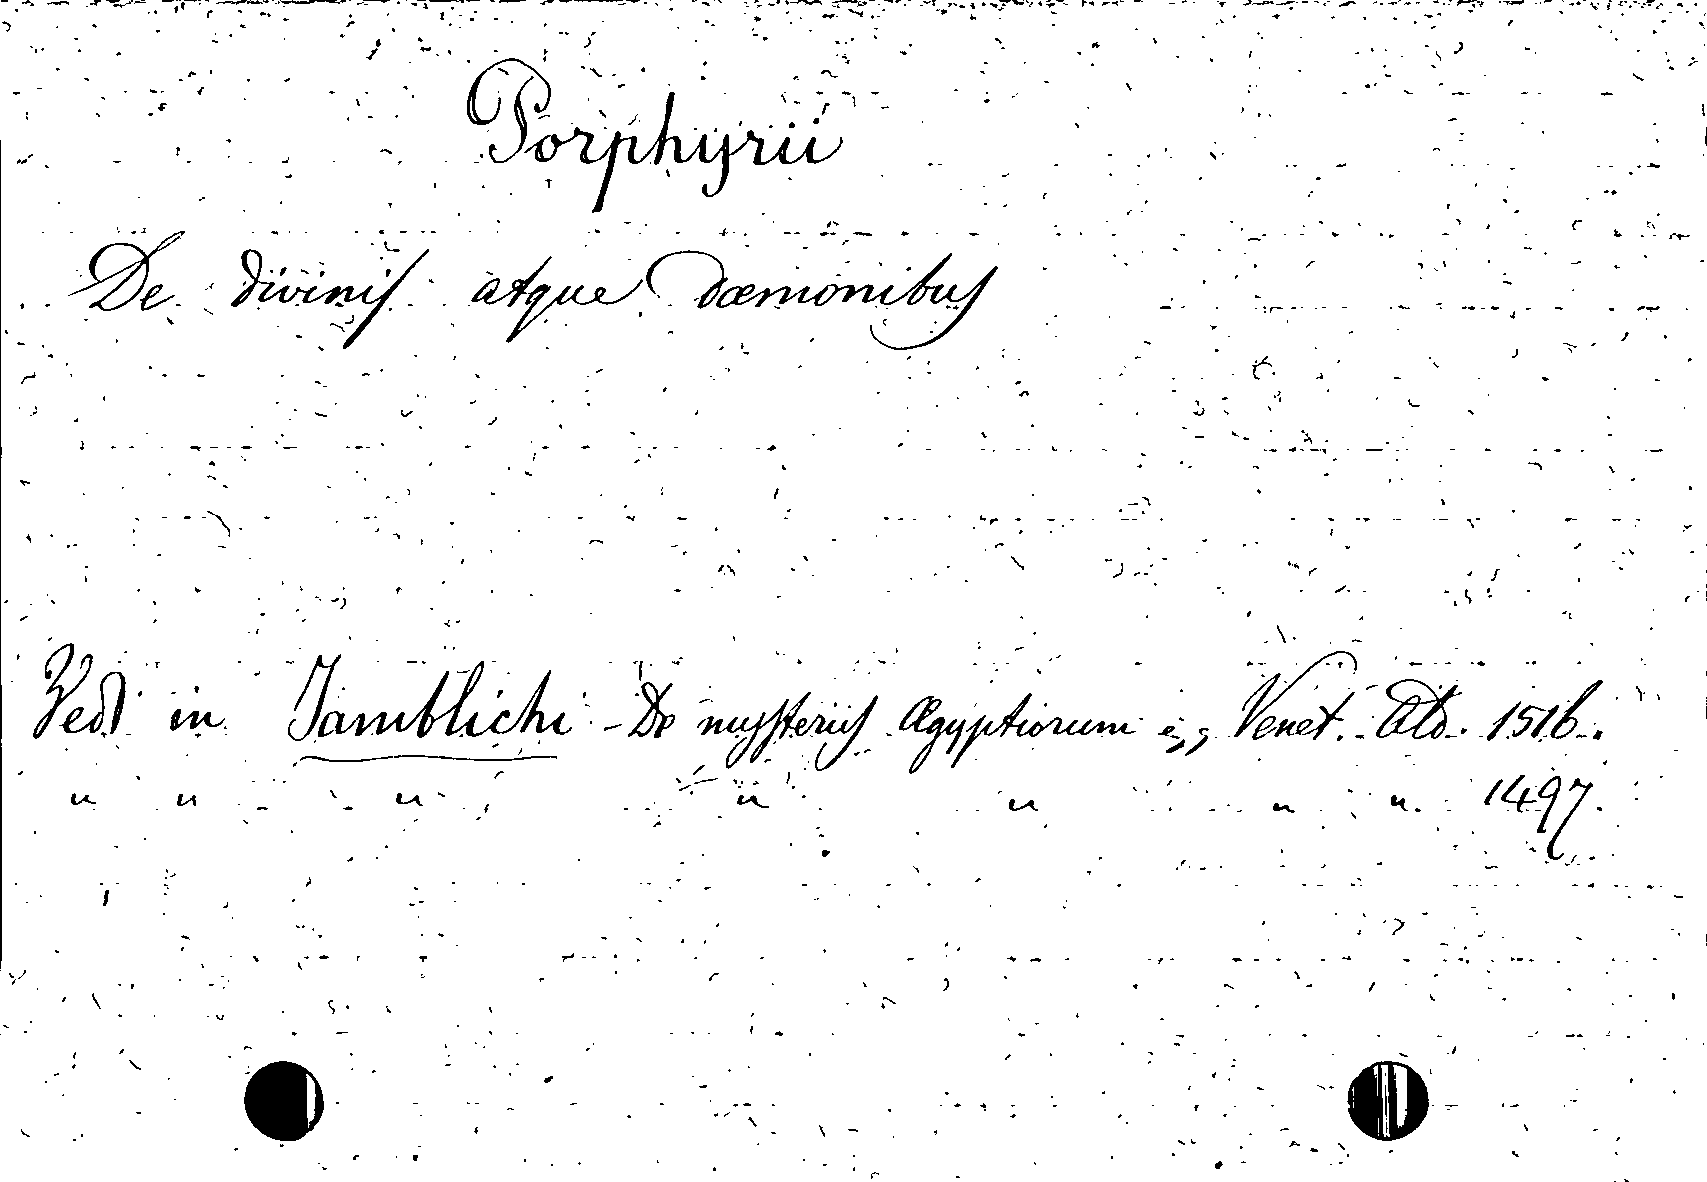 Porphyrii
De divinis atque dæmonibus
Vedi in Jamblichi - De mysteriis Ægyptiorum Venet. Ald. 1516.
" " " " " " " 1497.